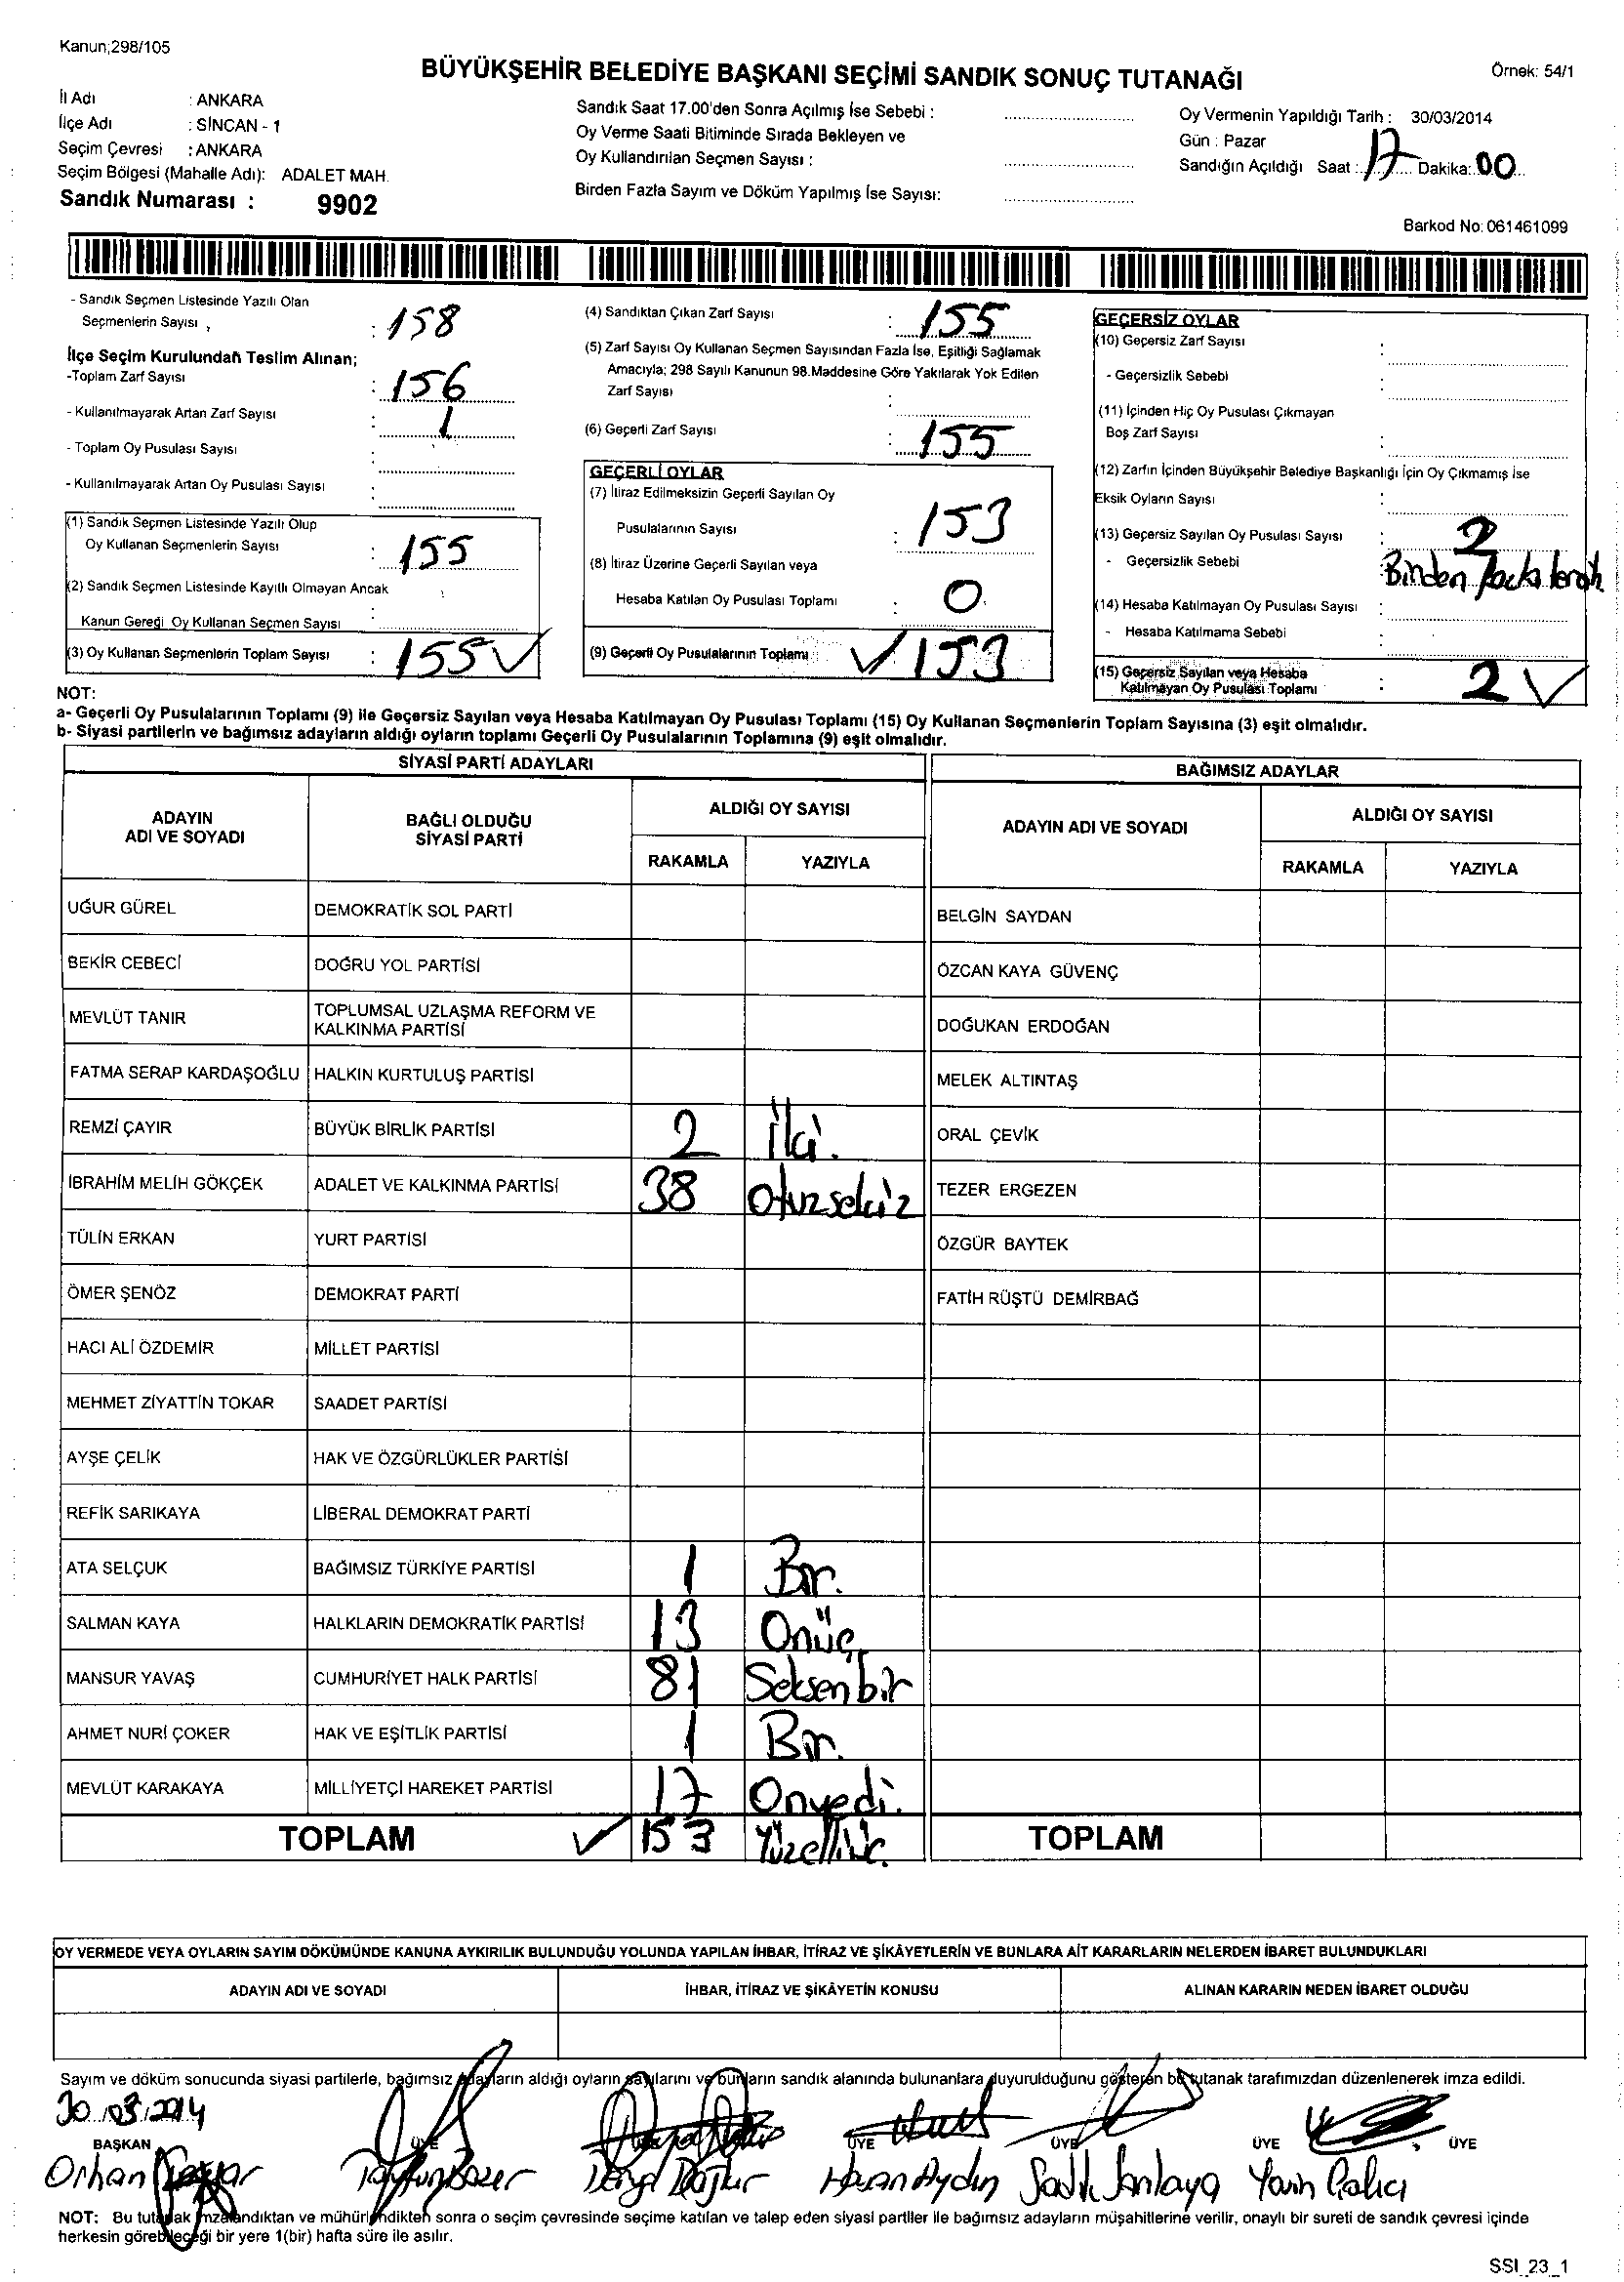 Kanun;298/105
BÜYÜKŞEHİR BELEDİYE BAŞKANI SEÇİMİ SANDIK SONUÇ TUTANAĞI
Örnek: 54/1
İl Adı : ANKARA
İlçe Adı : SİNCAN - 1
Seçim Çevresi : ANKARA
Seçim Bölgesi (Mahalle Adı): ADALET MAH.
Sandık Numarası : 9902
Sandık Saat 17.00'den Sonra Açılmış İse Sebebi :
Oy Verme Saati Bitiminde Sırada Bekleyen ve
Oy Kullandırılan Seçmen Sayısı :
Birden Fazla Sayım ve Döküm Yapılmış İse Sayısı:
Oy Vermenin Yapıldığı Tarih : 30/03/2014
Gün : Pazar
Sandığın Açıldığı Saat : 17 Dakika: 00
Barkod No: 061461099
- Sandık Seçmen Listesinde Yazılı Olan
Seçmenlerin Sayısı : 158
İlçe Seçim Kurulundan Teslim Alınan;
-Toplam Zarf Sayısı : 156
- Kullanılmayarak Artan Zarf Sayısı : 1
- Toplam Oy Pusulası Sayısı :
- Kullanılmayarak Artan Oy Pusulası Sayısı :
(1) Sandık Seçmen Listesinde Yazılı Olup
Oy Kullanan Seçmenlerin Sayısı : 155
(2) Sandık Seçmen Listesinde Kayıtlı Olmayan Ancak
Kanun Gereği Oy Kullanan Seçmen Sayısı :
(3) Oy Kullanan Seçmenlerin Toplam Sayısı : 155 ✓
(4) Sandıktan Çıkan Zarf Sayısı : 155
(5) Zarf Sayısı Oy Kullanan Seçmen Sayısından Fazla İse, Eşitliği Sağlamak
Amacıyla; 298 Sayılı Kanunun 98.Maddesine Göre Yakılarak Yok Edilen
Zarf Sayısı :
(6) Geçerli Zarf Sayısı : 155
GEÇERLİ OYLAR
(7) İtiraz Edilmeksizin Geçerli Sayılan Oy
Pusulalarının Sayısı : 153
(8) İtiraz Üzerine Geçerli Sayılan veya
Hesaba Katılan Oy Pusulası Toplamı : 0
(9) Geçerli Oy Pusulalarının Toplamı : ✓ 153
GEÇERSİZ OYLAR
(10) Geçersiz Zarf Sayısı :
- Geçersizlik Sebebi :
(11) İçinden Hiç Oy Pusulası Çıkmayan
Boş Zarf Sayısı :
(12) Zarfın İçinden Büyükşehir Belediye Başkanlığı İçin Oy Çıkmamış İse
Eksik Oyların Sayısı :
(13) Geçersiz Sayılan Oy Pusulası Sayısı : 2
- Geçersizlik Sebebi : Birden
(14) Hesaba Katılmayan Oy Pusulası Sayısı :
- Hesaba Katılmama Sebebi :
(15) Geçersiz Sayılan veya Hesaba
Katılmayan Oy Pusulası Toplamı : 2 ✓
NOT:
a- Geçerli Oy Pusulalarının Toplamı (9) ile Geçersiz Sayılan veya Hesaba Katılmayan Oy Pusulası Toplamı (15) Oy Kullanan Seçmenlerin Toplam Sayısına (3) eşit olmalıdır.
b- Siyasi partilerin ve bağımsız adayların aldığı oyların toplamı Geçerli Oy Pusulalarının Toplamına (9) eşit olmalıdır.
SİYASİ PARTİ ADAYLARI
ADAYIN ADI VE SOYADI | BAĞLI OLDUĞU SİYASİ PARTİ | ALDIĞI OY SAYISI
RAKAMLA | YAZIYLA
UĞUR GÜREL | DEMOKRATİK SOL PARTİ
BEKİR CEBECİ | DOĞRU YOL PARTİSİ
MEVLÜT TANIR | TOPLUMSAL UZLAŞMA REFORM VE KALKINMA PARTİSİ
FATMA SERAP KARDAŞOĞLU | HALKIN KURTULUŞ PARTİSİ
REMZİ ÇAYIR | BÜYÜK BİRLİK PARTİSİ | 2 | İki.
İBRAHİM MELİH GÖKÇEK | ADALET VE KALKINMA PARTİSİ | 38 | Otuzsekiz
TÜLİN ERKAN | YURT PARTİSİ
ÖMER ŞENÖZ | DEMOKRAT PARTİ
HACI ALİ ÖZDEMİR | MİLLET PARTİSİ
MEHMET ZİYATTİN TOKAR | SAADET PARTİSİ
AYŞE ÇELİK | HAK VE ÖZGÜRLÜKLER PARTİSİ
REFİK SARIKAYA | LİBERAL DEMOKRAT PARTİ
ATA SELÇUK | BAĞIMSIZ TÜRKİYE PARTİSİ | 1 | Bir.
SALMAN KAYA | HALKLARIN DEMOKRATİK PARTİSİ | 13 | Onüç
MANSUR YAVAŞ | CUMHURİYET HALK PARTİSİ | 81 | Seksenbir
AHMET NURİ ÇOKER | HAK VE EŞİTLİK PARTİSİ | 1 | Bir.
MEVLÜT KARAKAYA | MİLLİYETÇİ HAREKET PARTİSİ | 17 | Onyedi.
TOPLAM ✓ | 153 | Yüzelliüç.
BAĞIMSIZ ADAYLAR
ADAYIN ADI VE SOYADI | ALDIĞI OY SAYISI
RAKAMLA | YAZIYLA
BELGİN SAYDAN
ÖZCAN KAYA GÜVENÇ
DOĞUKAN ERDOĞAN
MELEK ALTINTAŞ
ORAL ÇEVİK
TEZER ERGEZEN
ÖZGÜR BAYTEK
FATİH RÜŞTÜ DEMİRBAĞ
TOPLAM
OY VERMEDE VEYA OYLARIN SAYIM DÖKÜMÜNDE KANUNA AYKIRILIK BULUNDUĞU YOLUNDA YAPILAN İHBAR, İTİRAZ VE ŞİKÂYETLERİN VE BUNLARA AİT KARARLARIN NELERDEN İBARET BULUNDUKLARI
ADAYIN ADI VE SOYADI | İHBAR, İTİRAZ VE ŞİKÂYETİN KONUSU | ALINAN KARARIN NEDEN İBARET OLDUĞU
Sayım ve döküm sonucunda siyasi partilerle, bağımsız adayların aldığı oyların sayılarını ve bunların sandık alanında bulunanlara duyurulduğunu gösteren bu tutanak tarafımızdan düzenlenerek imza edildi.
30.03.2014
BAŞKAN ÜYE ÜYE ÜYE ÜYE ÜYE
Orhan Hasan Aydın
NOT: Bu tutanak imzalandıktan ve mühürlendikten sonra o seçim çevresinde seçime katılan ve talep eden siyasi partiler ile bağımsız adayların müşahitlerine verilir, onaylı bir sureti de sandık çevresi içinde
herkesin görebileceği bir yere 1(bir) hafta süre ile asılır.
SSI_23_1